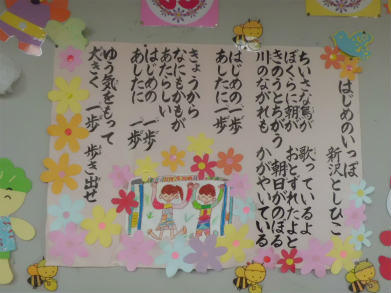 はじめのいっぽ
新沢としひこ
ちいさな鳥が 歌っているよ
ぼくらに朝が おとずれたよと
きのうとちがう 朝日がのぼる
川のながれも かがやいている
はじめの一歩
あしたに 一歩
きょうから
なにもかもが
あたらしい
はじめの 一歩
あしたに 一歩
ゆう気をもって
大きく 一歩 歩き出せ